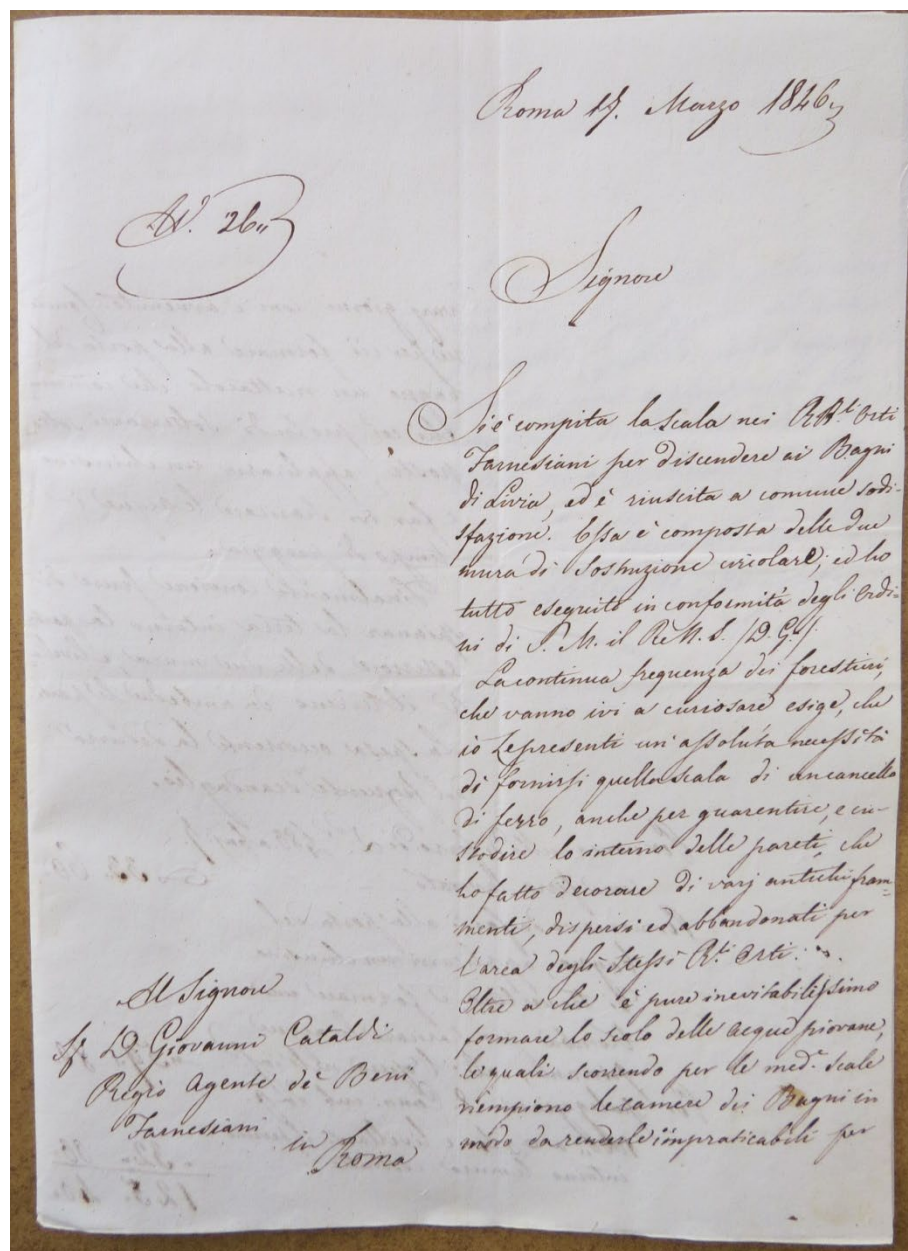 Roma 17. Marzo 1846
N.° 26
Signore
Si è compita la Scala nei RR.li Orti
Farnesiani per discendere ai Bagni
di Livia, ed è riuscita a comune sodi-
sfazione. Essa è composta delle due
mura di Sostruzione circolare; ed ho
tutto eseguito in conformità degli Ordi-
ni di S. M. il Re N. S. /D. G./.
La continua frequenza dei forestieri,
che vanno ivi a curiosare esige, che
io Le presenti un'assoluta necessità
di fornirsi quella scala di un cancello
di ferro, anche per guarentire, e cu-
stodire lo interno delle pareti, che
ho fatto decorare di varj antichi fram-
menti, dispersi ed abbandonati per
l'area degli Stessi R.li Orti.
Oltre a che è pure inevitabilissimo
formare lo scolo delle acque piovane,
le quali scorrendo per le med.e scale
riempiono le camere dei Bagni in
modo da renderle impraticabili per
Il Signore
D. Giovanni Cataldi
Regio Agente de' Beni
Farnesiani
in Roma